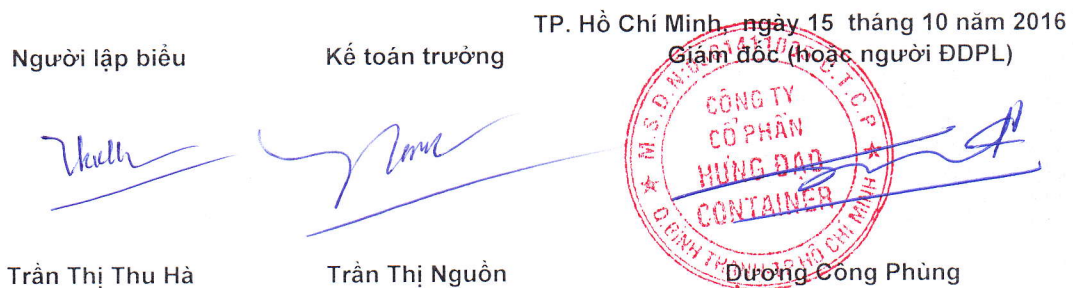 TP. Hồ Chí Minh, ngày 15 tháng 10 năm 2016
Người lập biểu Kế toán trưởng Giám đốc (hoặc người ĐDPL)
CÔNG TY
CỔ PHẦN
HƯNG ĐẠO
CONTAINER
Q.BÌNH THẠNH TP.HỒ CHÍ MINH
Trần Thị Thu Hà Trần Thị Nguồn Dương Công Phùng